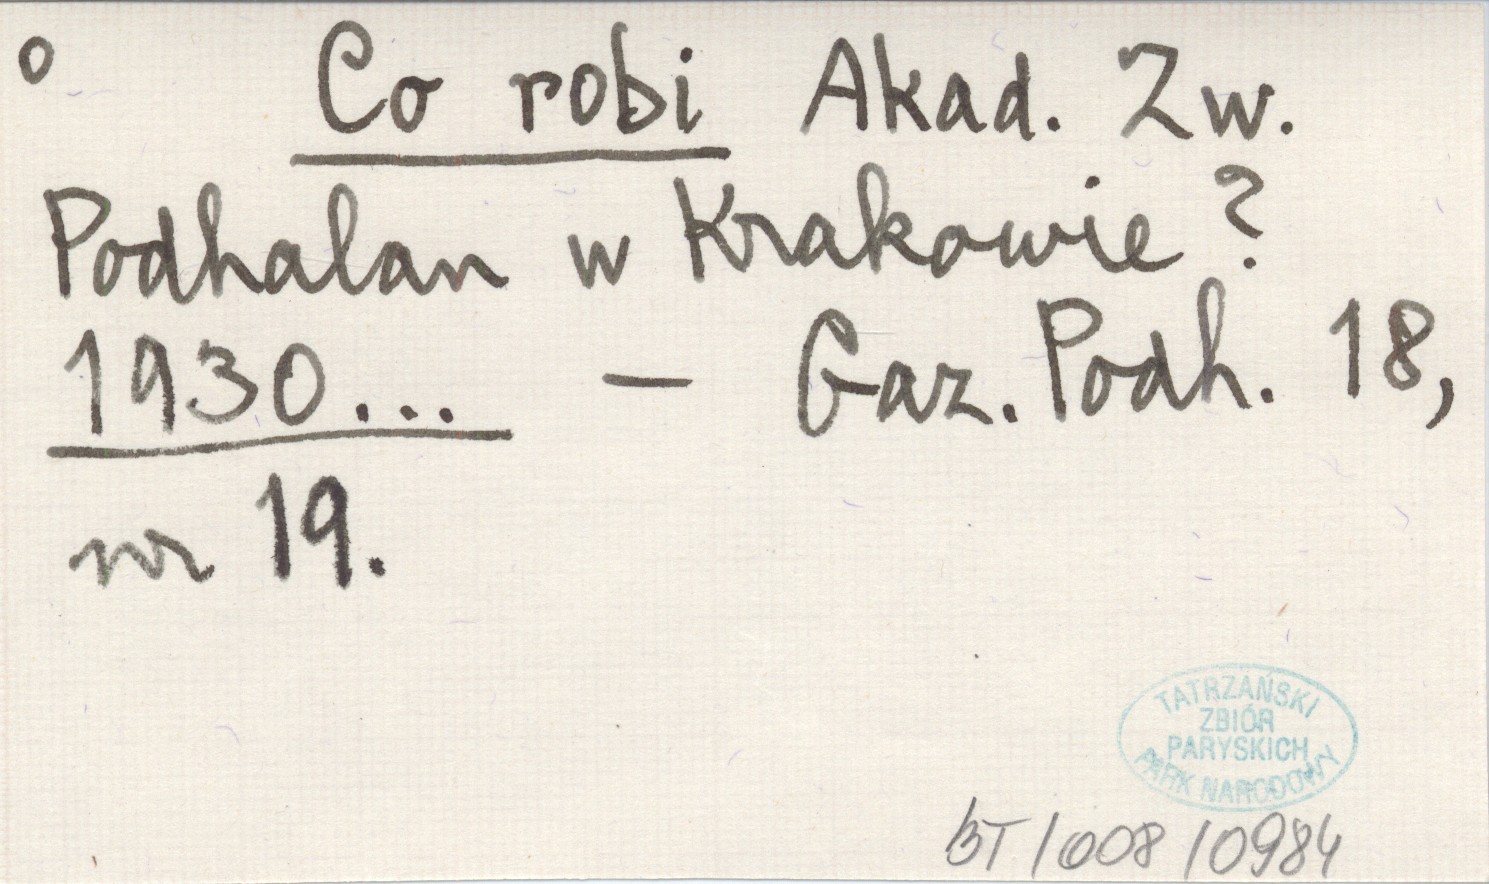 o Co robi Akad. Zw.
Podhalan w Krakowie?
1930... — Gaz. Podh. 18,
nr 19.
TATRZAŃSKI
ZBIÓR
PARYSKICH
PARK NARODOWY
BT/008/0984